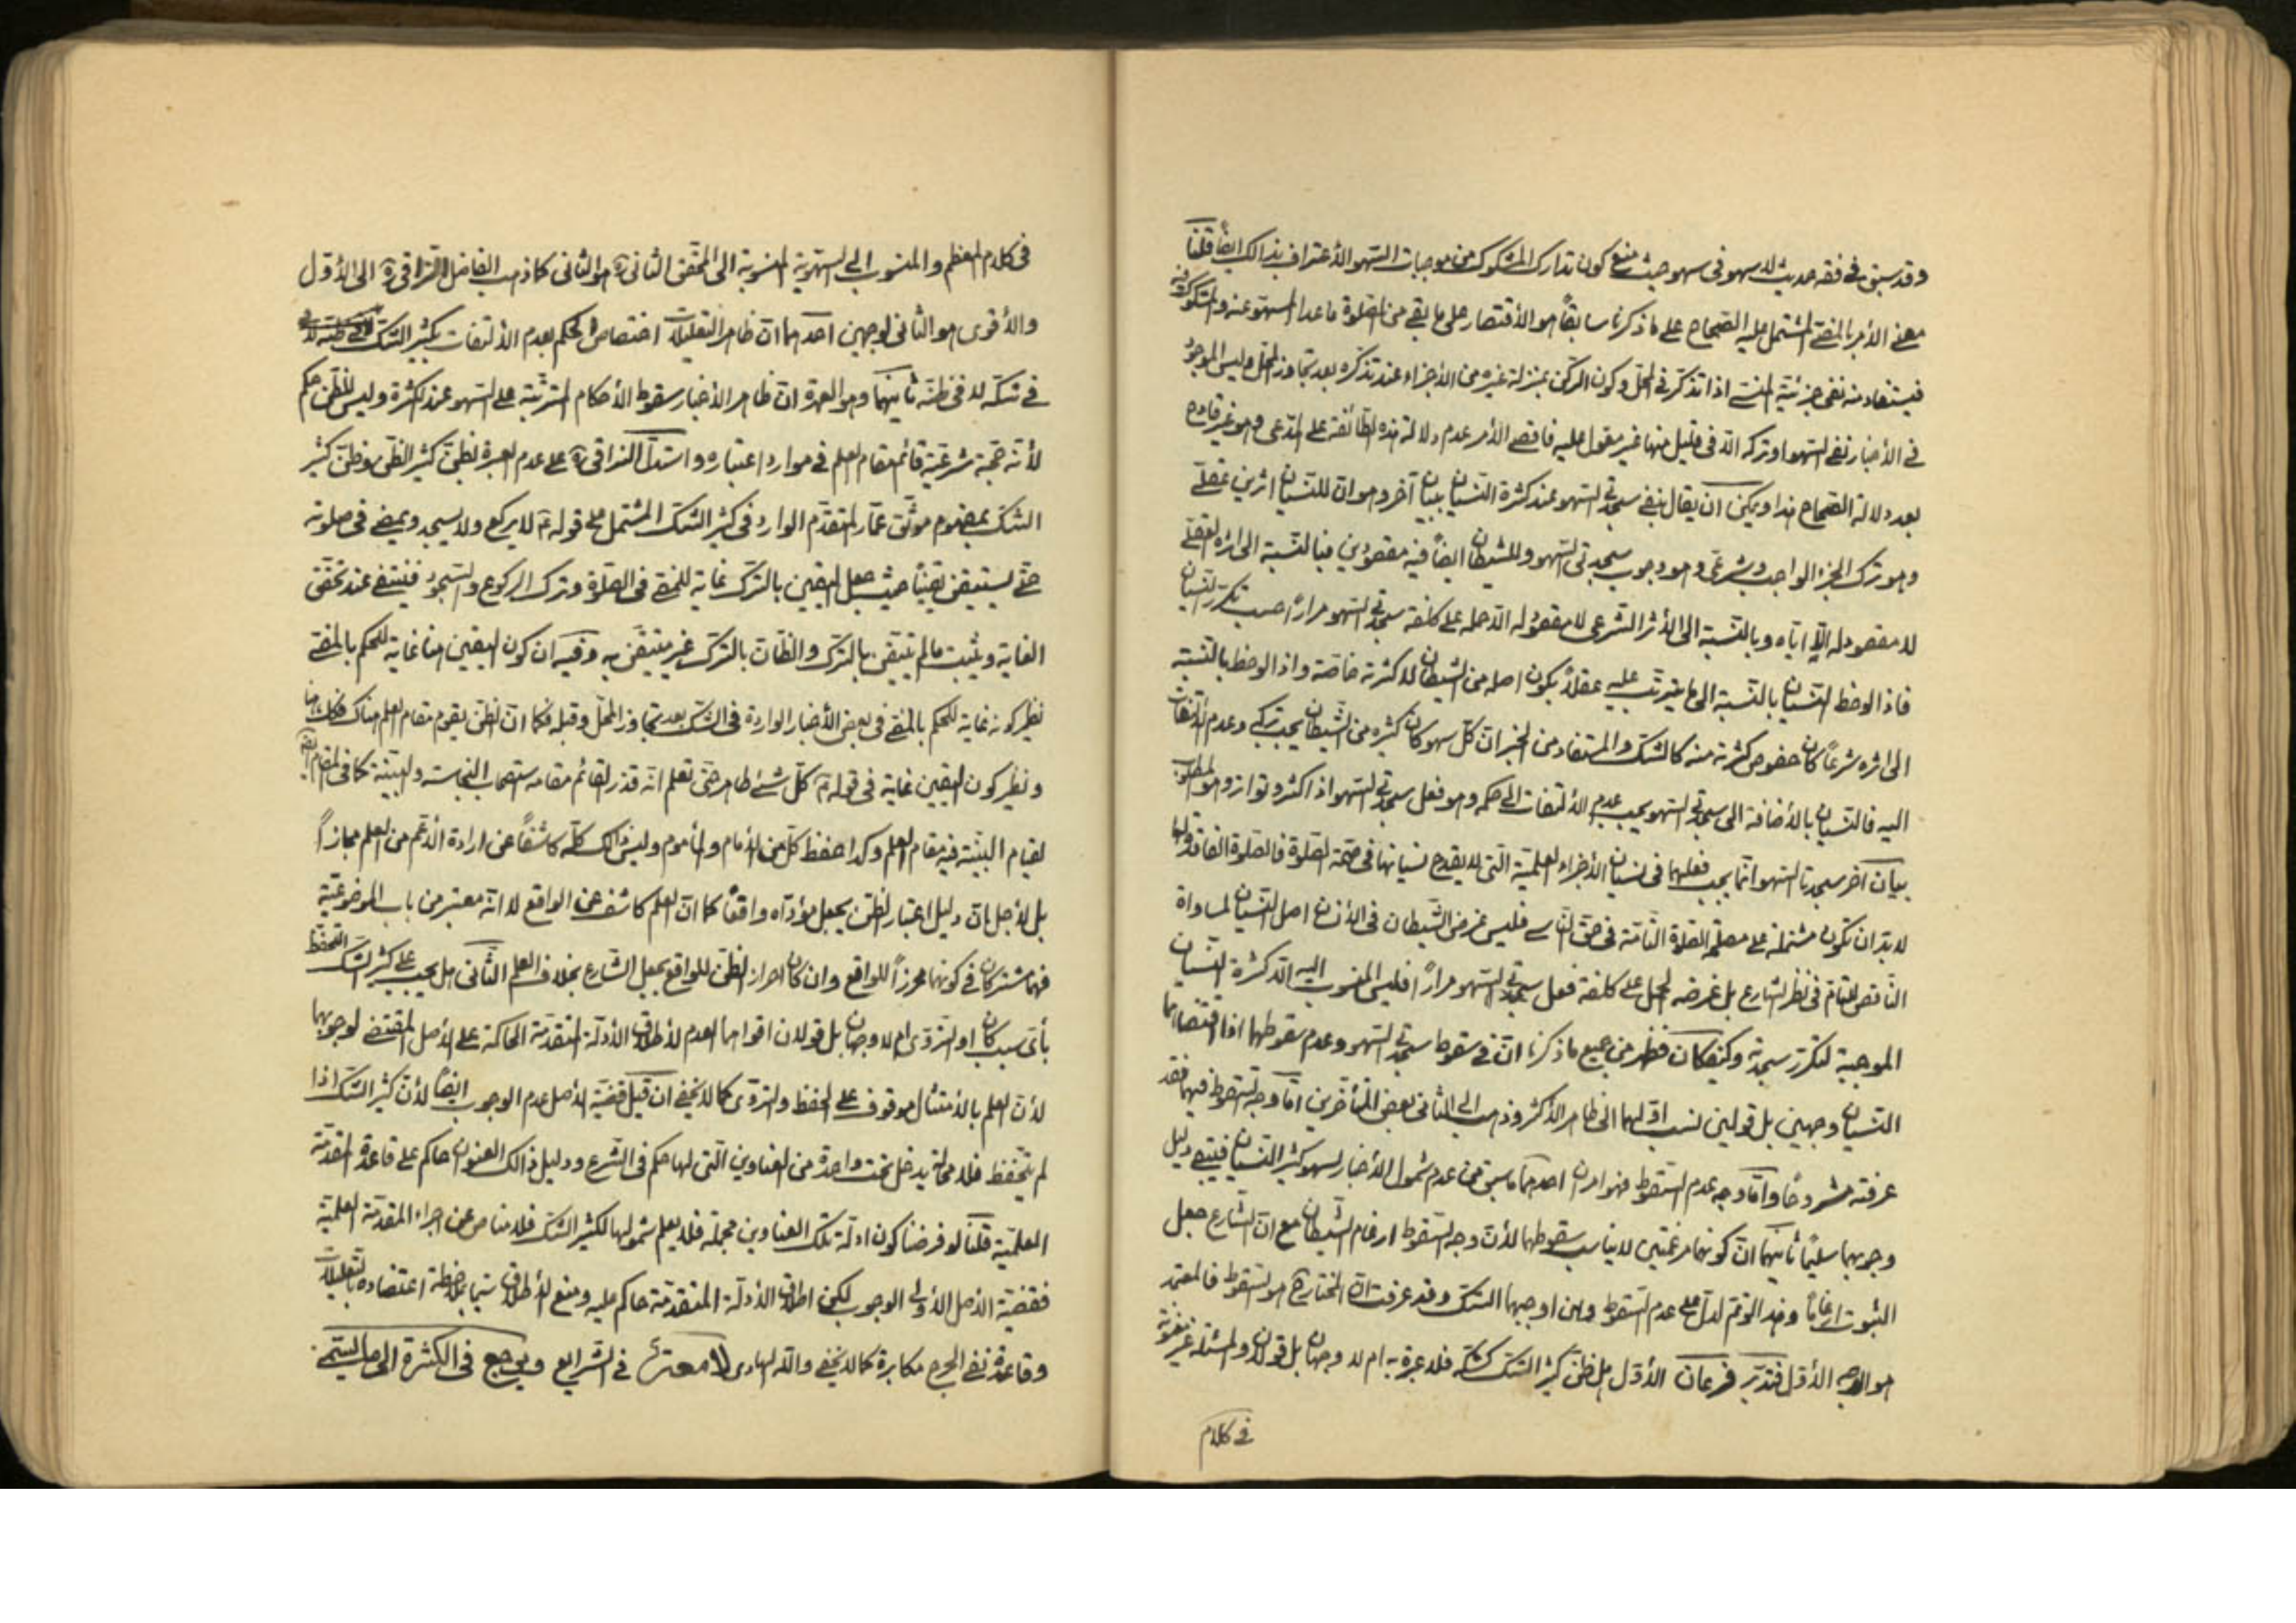 وقد سبق في فقه حديث لا سهو في سهو حيث منع كون تدارك المشكوك من موجبات السهو الاعتراف بذالك ايضاً قلنا
معنى الأمر بالمضي المشتمل عليه الصحاح على ما ذكرنا سابقاً هو الأقتصار على ما بقي من الصلوة ما عدا المسهو عنه والمشكوك فيه
فيستفاد منه نفي جزئية المنسي اذا تذكر في المحل وكون الركن بمنزلة غيره من الأجزاء عند تذكره بعد تجاوز المحل وليس الموجود
في الأخبار نفي السهو او تركه الا في قليل منها غير معول عليه فاقصى الأمر عدم دلالة هذه الطائفة على المدعى وهو غير قادح
بعد دلالة الصحاح هذا ويمكن ان يقال بنفي سجدتي السهو عند كثرة النسيان ببيان آخر وهو ان للنسيان اثرين عقلي
وهو ترك الجزء الواجب وشرعي وهو وجوب سجدتي السهو وللشيطان ايضاً فيه مقصودين فبالنسبة الى اثره العقلي
لا مقصود له الا اياه وبالنسبة الى الأثر الشرعي لا مقصود له الا حمله على كلفة سجدتي السهو مراراً حسب تكرر النسيان
فاذا لوحظ النسيان بالنسبة الى ما يترتب عليه عقلاً يكون اصله من الشيطان لا كثرته خاصة واذا لوحظ بالنسبة
الى اثره شرعاً كان خصوص كثرته منه كالشك والمستفاد من الخبر ان كل سهو كان كثيره من الشيطان يجب تركه وعدم الألتفات
اليه فالنسيان بالأضافة الى سجدتي السهو يجب عدم الألتفات الى حكمه وهو فعل سجدتي السهو اذا كثر وتواتر وهو المطلوب
بيان آخر سجدتا السهو انما يجب فعلهما في نسيان الأجزاء العلمية التي لا يقدح نسيانها في صحة الصلوة فالصلوة الفاقدة لها
لا بد ان تكون مشتملة على مصلحة الصلوة التامة في حق الناسي فليس غرض الشيطان في الأذن اصل النسيان لمساواة
الناقص للتام في نظر الشارع بل غرضه الحمل على كلفة فعل سجدتي السهو مراراً فليس المنسوب اليه الا كثرة النسيان
الموجبة لتكرر سجدته وكيفكان فظهر من جميع ما ذكرنا ان في سقوط سجدتي السهو وعدم سقوطهما اذا اقتضاهما
النسيان وجهين بل قولين نسب اولهما الى ظاهر الأكثر وذهب الى الثاني بعض المتأخرين اما وجه السقوط فيهما فقد
عرفته مشروحاً واما وجه عدم السقوط فهو امران احدهما ما سبق من عدم شمول الأخبار لسهو كثير النسيان فيبقى دليل
وجوبهما سليماً ثانيهما ان كونهما مرغمتين لا يناسب سقوطهما لأن وجه السقوط ارغام الشيطان مع ان الشارع جعل
الثبوت ارغاماً وهذا لو تم لدل على عدم السقوط ولو اوجبهما الشك وقد عرفت ان المختار هو السقوط فالمعتمد
هو الوجه الأول فتدبر فرعان الأول هل ظن كثير الشك كشكه فلا عبرة به ام لا وجهان بل قولان والمسئلة غير معنونة
في كلام
في كلام المعظم والمنسوب الى السهوية المنسوبة الى المحقق الثاني ره هو الثاني كما ذهب الفاضل النراقي ره الى الأول
والأقوى هو الثاني لوجهين احدهما ان ظاهر التعليلات اختصاص الحكم بعدم الألتفات بكثير الشك
في شكه لا في ظنه ثانيهما وهو العمدة ان ظاهر الأخبار سقوط الأحكام المترتبة على السهو عند الكثرة وليس للظن حكم
لأنه حجة شرعية قائم مقام العلم في موارد اعتباره واستدل النراقي ره على عدم العبرة بظن كثير الظن وظن كثير
الشك بمفهوم موثق عمار المتقدم الوارد في كثير الشك المشتمل على قوله ع لا يركع ولا يسجد ويمضي في صلوته
حتى يستيقن يقيناً حيث جعل اليقين بالترك غاية للمضي في الصلوة وترك الركوع والسجود فينتفي عند تحقق
الغاية ويثبت ما لم يتيقن بالترك والظان بالترك غير متيقن به وفيه ان كون اليقين هنا غاية للحكم بالمضي
نظير كونه غاية للحكم بالمضي في بعض الأخبار الواردة في الشك بعد تجاوز المحل وقبله فكما ان الظن يقوم مقام العلم هناك فكذا هنا
ونظير كون اليقين غاية في قوله ع كل شئ طاهر حتى تعلم انه قذر القائم مقامه استصحاب النجاسة والبينة كما في المقام ايضاً
لقيام البينة فيه مقام العلم وكذا حفظ كل من الأمام والمأموم وليس ذالك كله كاشفاً عن ارادة الأعم من العلم مجازاً
بل لأجل ان دليل اعتبار الظن يجعل مؤداه واقعاً كما ان العلم كاشف عن الواقع لا انه معتبر من باب الموضوعية
فهما مشتركان في كونهما محرزاً للواقع وان كان احراز الظن للواقع بجعل الشارع بخلاف العلم الثاني هل يجب على كثير الشك التحفظ
بأي سبب كان او التروي ام لا وجهان بل قولان اقواهما العدم لأطلاق الأدلة المتقدمة الحاكمة على الأصل المقتضي لوجوبهما
لأن العلم بالأمتثال موقوف على الحفظ والتروي كما لا يخفى ان قيل قضية الأصل عدم الوجوب ايضاً لأن كثير الشك اذا
لم يتحفظ فلا محالة يدخل تحت واحدة من العناوين التي لها حكم في الشرع ودليل ذالك العنوان حاكم على قاعدة المقدمة
العلمية قلنا لو فرضنا كون ادلة تلك العناوين مجملة فلا يعلم شمولها لكثير الشك فلا مناص عن اجراء المقدمة العلمية
فقضية الأصل الأولى الوجوب لكن اطلاق الأدلة المتقدمة حاكم عليه ومنع الأطلاق سيما بملاحظة اعتضاده بالتعليلات
وقاعدة نفي الحرج مكابرة كما لا يخفى والله الهادى في الشرايع ويرجع في الكثرة الى ما يسمى